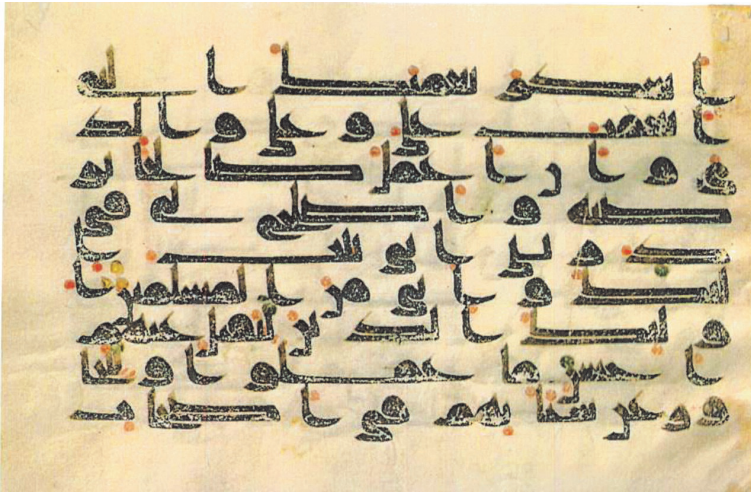 اشكر نعمتك التى
انعمت على وعلى ولد
ى وان اعمل صلحا تر
ضيه واصلح لى فى
ذريتى انى تبت
اليك وانى من المسلمين ا
وليك الذين نتقبل عنهم
احسن ما عملوا ونتجا
وز عن سياتهم فى اصحب